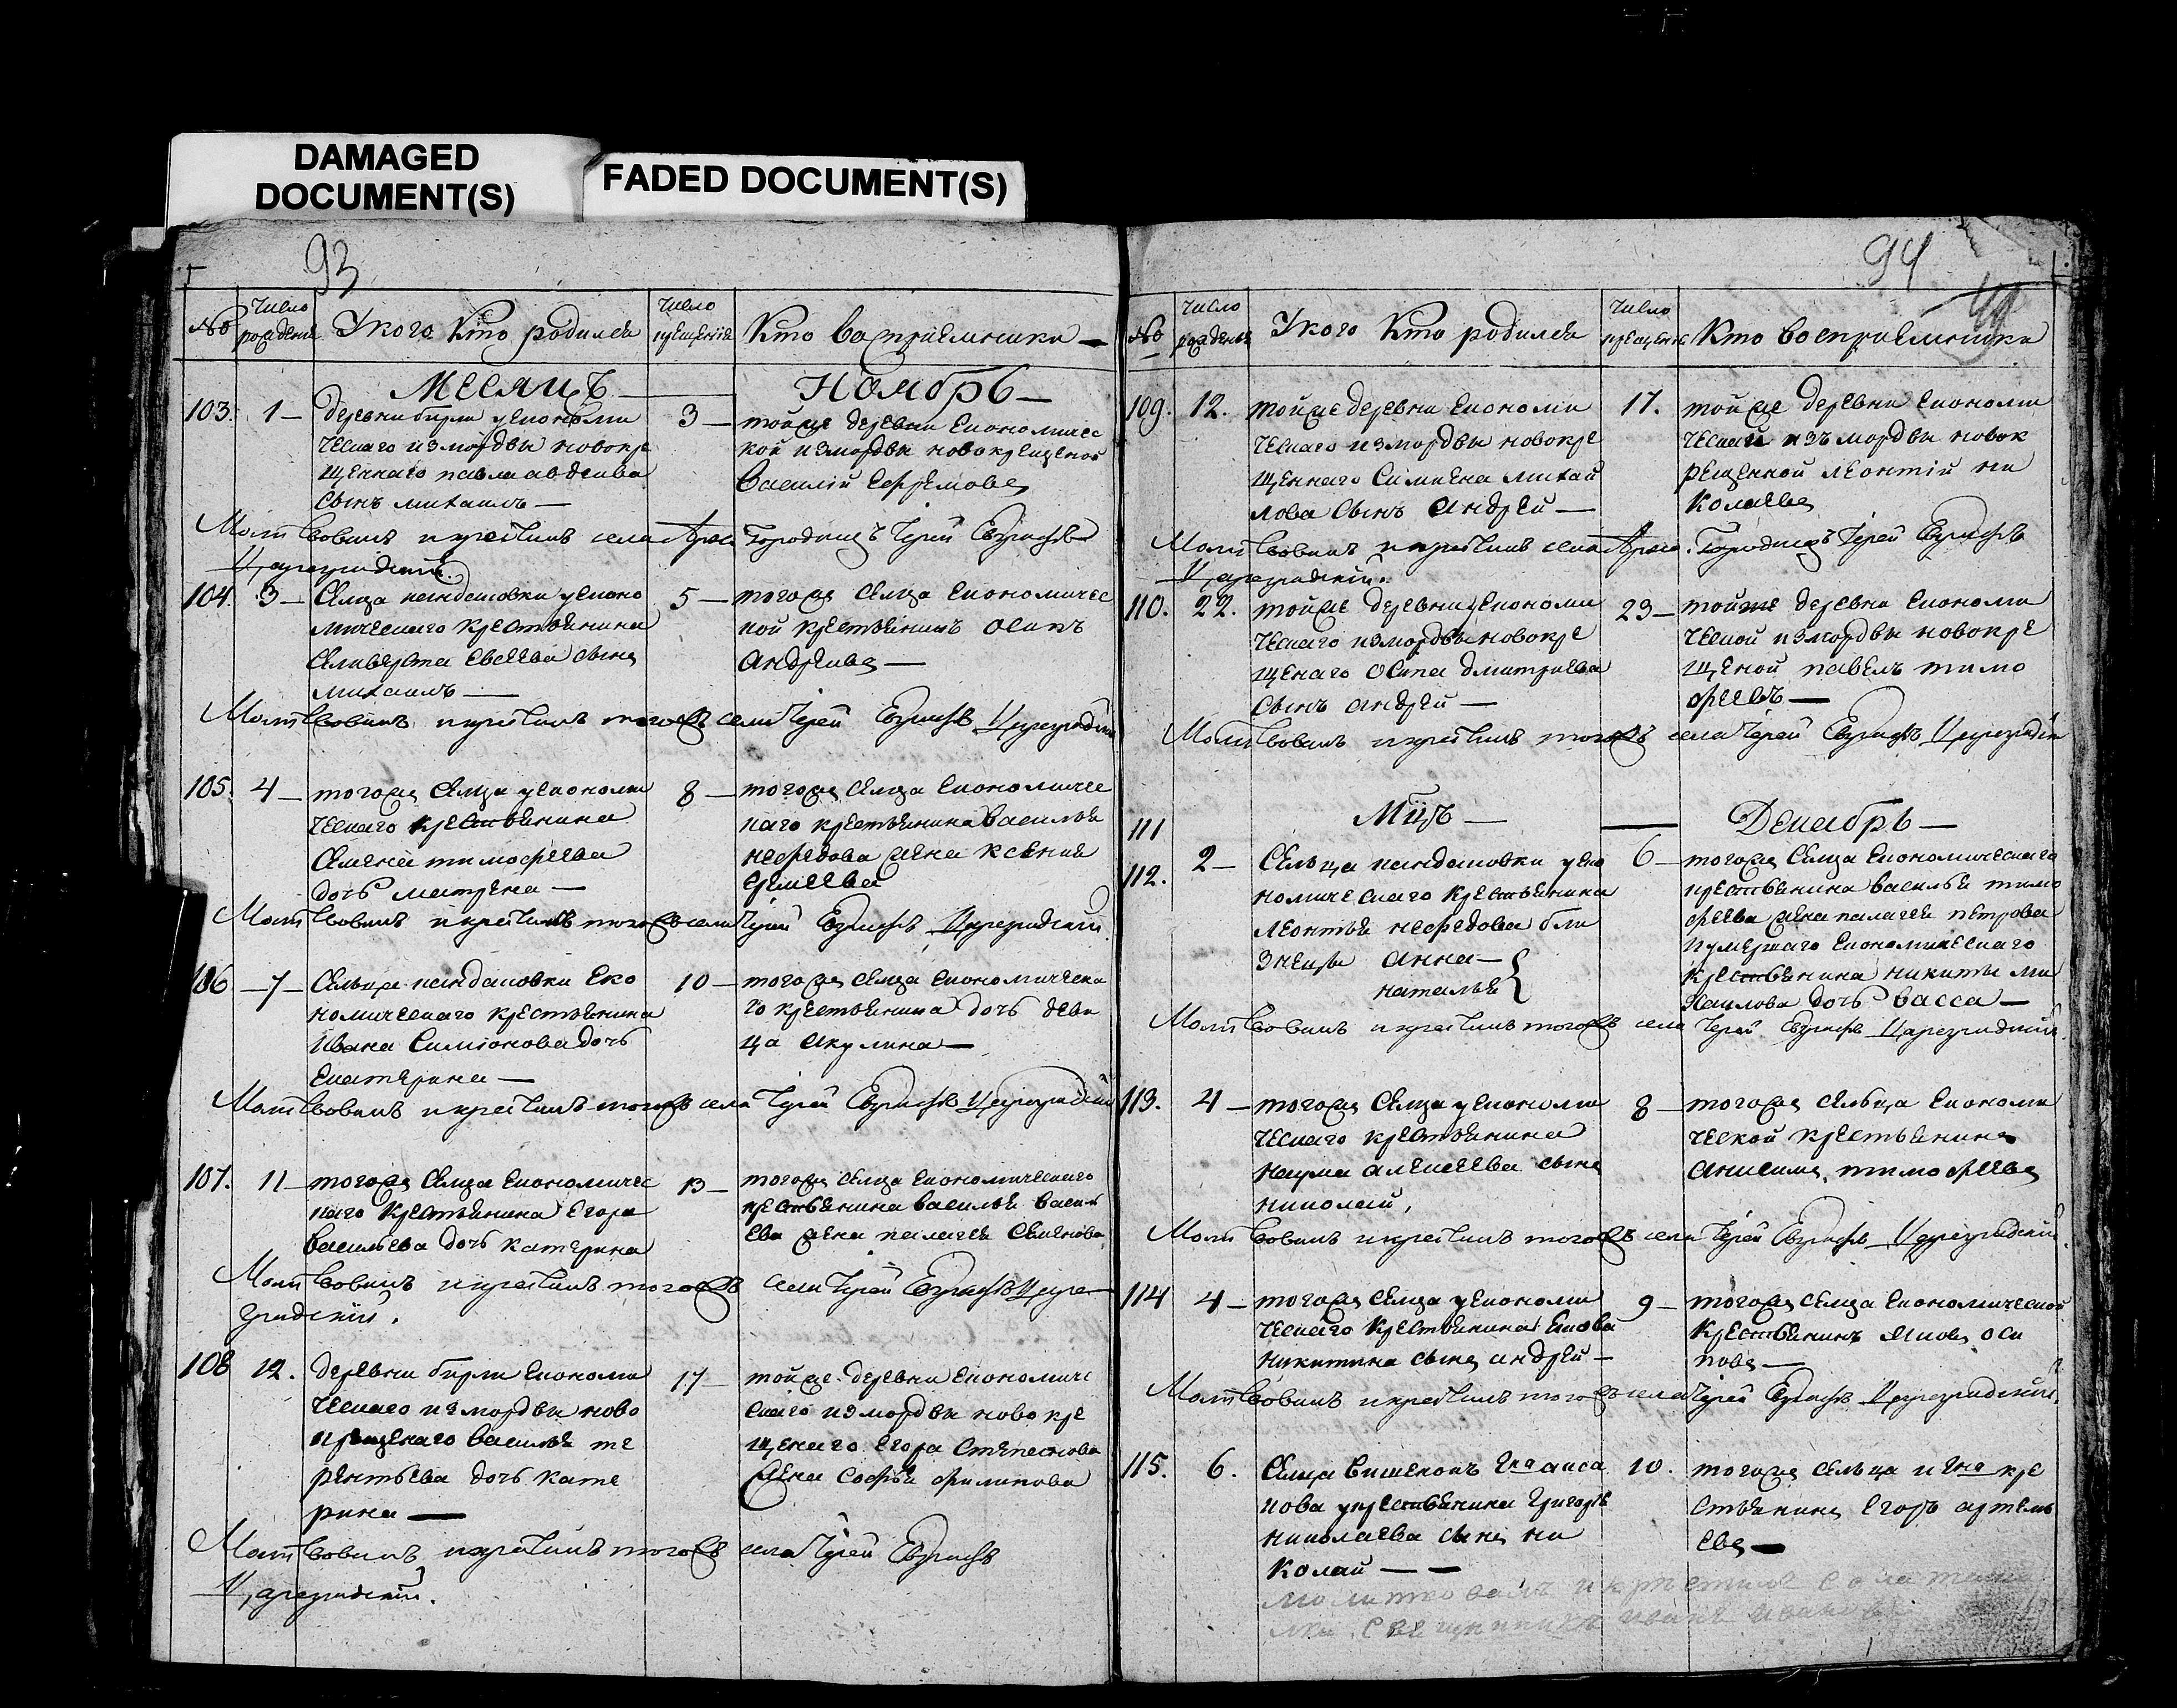 DAMAGED
DOCUMENT(S)
FADED DOCUMENT(S)
93
№ Число рожденія Укого кто родился Число крещенія Кто восприемники
Месяцъ Ноябрь
103. 1 3
деревни бирли уекономи
ческаго измордвы новокре
щеннаго павла авдеива
сынъ михаилъ
тойже деревни економичес
кой измордвы новокрещеной
василій Ефремовъ
Молитвовалъ икрестилъ села Городищъ Іерей Евграфъ
Цареградскій.
104. 3 5
Селца пандаловки уеконо
мическаго крестьянина
Селиверста Евсеева сынъ
михаилъ
тогожъ селца економичес
кой крестьянинъ осипъ
андреивъ
Молитвовалъ икрестилъ тогожъ села Іерей Евграфъ Цареградскій
105. 4 8
тогожъ Селца уекономи
ческаго крестьянина
Семена тимофеева
дочь матрена
тогожъ селца економичес
каго крестьянина василья
нефедова жена ксения
Молитвовалъ икрестилъ тогожъ села Іерей Евграфъ Цареградскій.
106 7 10
Сельца пандаловки Еко
номическаго крестьянина
Ивана Симіонова дочь
Екатерина
тогожъ селца економическа
го крестьянина дочь деви
ца Акулина
Молитвовалъ икрестилъ тогожъ села Іерей Евграфъ Цареградскій
107. 11 13
тогожъ Селца економичес
каго крестьянина Егора
васильева дочь катерина
тогожъ селца економическаго
крестьянина василья василь
ева жена палагея Семенова
Молитвовалъ икрестилъ тогожъ села Іерей Евграфъ Царе
градскій.
108 12. 17
деревни бирли економи
ческаго измордвы ново
крещенаго василья те
рентьева дочь кате
рина
тойже деревни економиче
скаго измордвы новокре
щенаго Егора Степанова
жена софья филипова
Молитвовалъ икрестилъ тогожъ села Іерей Евграфъ
Цареградскій.
94
№ Число рожденья Укого кто родился Число крещения Кто восприемники
109. 12. 17.
тойже деревни економи
ческаго измордвы новокре
щеннаго Симиена михай
лова Сынъ Андрей
тойже деревни економи
ческаго изъ мордвы новок
рещенной леонтій ни
колаевъ
Молитвовалъ икрестилъ села Городищъ Іерей Евграфъ
Цареградскій.
110. 22. 23
тойже деревни уекономи
ческаго измордвы новокре
щенаго Осипа дмитриева
Сынъ андрей
тойже деревни економи
ческой измордвы новокре
щеной павелъ тимо
феевъ
Молитвовалъ икрестилъ тогожъ села Іерей Евграфъ Цареградскій
Мцъ Декабрь
111
112. 2 6
Сельца пандаловки уеко
номическаго крестьянина
леонтья нефедова бли
знецы анна
наталья
тогожъ селца економическаго
крестьянина василья тимо
феева жена палагея петрова
иумершаго економическаго
крестьянина никиты ми
хаилова дочь васса
Молитвовалъ икрестилъ тогожъ села Іерей Евграфъ Цареградскій
113. 4 8
тогожъ Селца уекономи
ческаго крестьянина
наума алексеева сынъ
николай,
тогожъ сельца економи
ческой крестьянинъ
анисимъ тимофеевъ
Молитвовалъ икрестилъ тогожъ села Іерей Евграфъ Цареградскій
114 4 9
тогожъ селца уекономи
ческаго крестьянина якова
никитина сынъ андрей
тогожъ селца економической
крестьянинъ яковъ оси
повъ
Молитвовалъ икрестилъ тогожъ села Іерей Евграфъ Цареградскій
115. 6. 10.
Селца Вишенокъ Гна акса
кова укрестьянина григорья
николаева сынъ ни
колай
тогожъ сельца и Гна кре
стьянинъ Егоръ артемь
евъ
молитвовалъ икрестилъ села
священникъ иванъ ивановъ